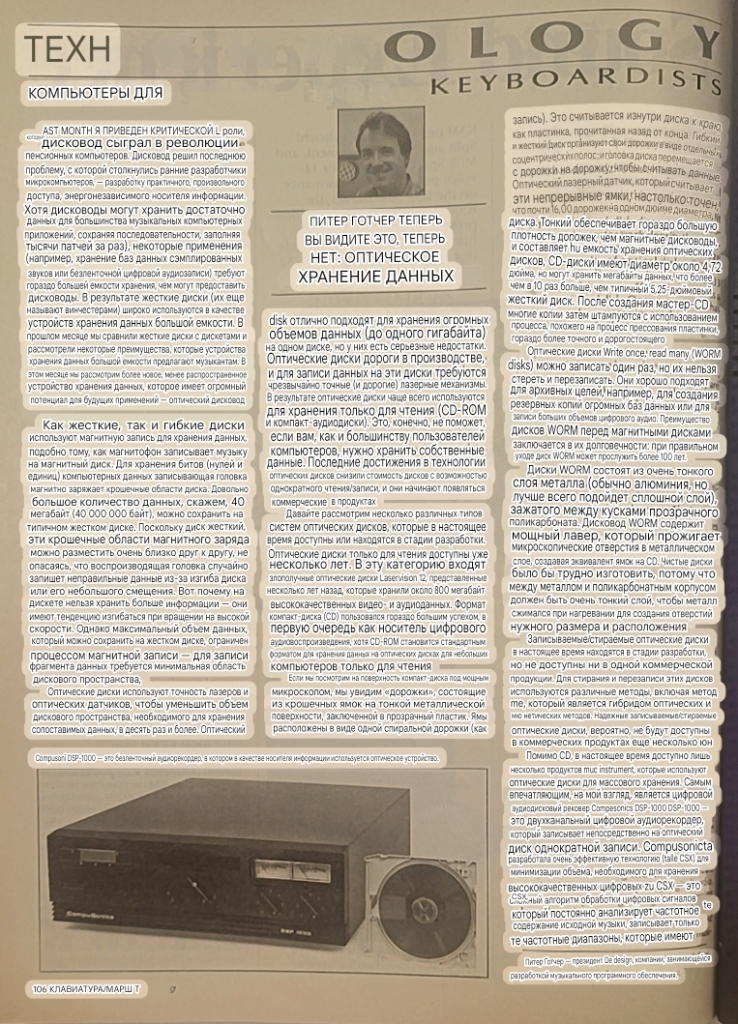 ТЕХН
OLOGY
KEYBOARDISTS
КОМПЬЮТЕРЫ ДЛЯ
AST MONTH Я ПРИВЕДЕН КРИТИЧЕСКОЙ L роли,
дисковод сыграл в революции
пенсионных компьютеров. Дисковод решил последнюю
проблему, с которой столкнулись ранние разработчики
микрокомпьютеров, — разработку практичного, произвольного
доступа, энергонезависимого носителя информации.
Хотя дисководы могут хранить достаточно
данных для большинства музыкальных компьютерных
приложений, сохраняя последовательности, заполняя
тысячи патчей за раз), некоторые применения
(например, хранение баз данных сэмплированных
звуков или безленточной цифровой аудиозаписи) требуют
гораздо большей емкости хранения, чем могут предоставить
дисководы. В результате жесткие диски (их еще
называют винчестерами) широко используются в качестве
устройств хранения данных большой емкости. В
прошлом месяце мы сравнили жесткие диски с дискетами и
рассмотрели некоторые преимущества, которые устройства
хранения данных большой емкости предлагают музыкантам. В
этом месяце мы рассмотрим более новое, менее распространенное
устройство хранения данных, которое имеет огромный
потенциал для будущих применений — оптический дисковод
Как жесткие, так и гибкие диски
используют магнитную запись для хранения данных,
подобно тому, как магнитофон записывает музыку
на магнитный диск. Для хранения битов (нулей и
единиц) компьютерных данных записывающая головка
магнитно заряжает крошечные области диска. Довольно
большое количество данных, скажем, 40
мегабайт (40 000 000 байт), можно сохранить на
типичном жестком диске. Поскольку диск жесткий,
эти крошечные области магнитного заряда
можно разместить очень близко друг к другу, не
опасаясь, что воспроизводящая головка случайно
запишет неправильные данные из-за изгиба диска
или его небольшого смещения. Вот почему на
дискете нельзя хранить больше информации — они
имеют тенденцию изгибаться при вращении на высокой
скорости. Однако максимальный объем данных,
который можно сохранить на жестком диске, ограничен
процессом магнитной записи — для записи
фрагмента данных требуется минимальная область
дискового пространства,
Оптические диски используют точность лазеров и
оптических датчиков, чтобы уменьшить объем
дискового пространства, необходимого для хранения
сопоставимых данных, в десять раз и более. Оптический
ПИТЕР ГОТЧЕР ТЕПЕРЬ
ВЫ ВИДИТЕ ЭТО, ТЕПЕРЬ
НЕТ: ОПТИЧЕСКОЕ
ХРАНЕНИЕ ДАННЫХ
disk отлично подходят для хранения огромных
объемов данных (до одного гигабайта)
на одном диске, но у них есть серьезные недостатки.
Оптические диски дороги в производстве,
и для записи данных на эти диски требуются
чрезвычайно точные (и дорогие) лазерные механизмы.
В результате оптические диски чаще всего используются
для хранения только для чтения (CD-ROM
и компакт-аудиодиски). Это, конечно, не поможет,
если вам, как и большинству пользователей
компьютеров, нужно хранить собственные
данные. Последние достижения в технологии
оптических дисков снизили стоимость дисков с возможностью
однократного чтения/записи, и они начинают появляться
коммерческие в продуктах
Давайте рассмотрим несколько различных типов
систем оптических дисков, которые в настоящее
время доступны или находятся в стадии разработки.
Оптические диски только для чтения доступны уже
несколько лет. В эту категорию входят
злополучные оптические диски Laservision 12, представленные
несколько лет назад, которые хранили около 800 мегабайт
высококачественных видео- и аудиоданных. Формат
компакт-диска (CD) пользовался гораздо большим успехом, в
первую очередь как носитель цифрового
аудиовоспроизведения, хотя CD-ROM становится стандартным
форматом для хранения данных на оптических дисках для небольших
компьютеров только для чтения
Если мы посмотрим на поверхность компакт-диска под мощным
микроскопом, мы увидим «дорожки», состоящие
из крошечных ямок на тонкой металлической
поверхности, заключенной в прозрачный пластик. Ямы
расположены в виде одной спиральной дорожки (как
запись). Это считывается изнутри диска к краю,
как пластинка, прочитанная назад от конца. Гибкий
и жесткий диск организуют свои дорожки в виде отдельных
соцентрических полос: иголовка диска перемещается
с дорожки на дорожку, чтобы считывать данные
Оптический лазерный датчик, который считывает
эти непрерывные ямки, настолько точен,
что почти 16,00 дорожек на одном дюйме диаметра
диска. Тонкий обеспечивает гораздо большую
плотность дорожек, чем магнитные дисководы,
и составляет hu емкость хранения оптических
дисков, CD-диски имеют диаметр около 4,72
дюйма, но могут хранить мегабайты данных, что более
чем в 10 раз больше, чем типичный 5,25-дюймовый
жесткий диск. После создания мастер-CD
многие копии затем штампуются с использованием
процесса, похожего на процесс прессования пластинки,
гораздо более точного и дорогостоящего
Оптические диски Write once, read many (WORM
disks) можно записать один раз, но их нельзя
стереть и перезаписать. Они хорошо подходят
для архивных целей, например, для создания
резервных копии огромных баз данных или для
записи больших объемов цифрового аудио. Преимущество
дисков WORM перед магнитными дисками
заключается в их долговечности: при правильном
уходе диск WORM может прослужить более 100 лет.
Диски WORM состоят из очень тонкого
слоя металла (обычно алюминия, но
лучше всего подойдет сплошной слой),
зажатого между кусками прозрачного
поликарбоната. Дисковод WORM содержит
мощный лавер, который прожигает
микроскопические отверстия в металлическом
слое, создавая эквивалент ямок на CD. Чистые диски
было бы трудно изготовить, потому что
между металлом и поликарбонатным корпусом
должен быть очень тонкий слой, чтобы металл
сжимался при нагревании для создания отверстий
нужного размера и расположения
Записываемые/стираемые оптические диски
в настоящее время находятся в стадии разработки,
но не доступны ни в одной коммерческой
продукции. Для стирания и перезаписи этих дисков
используются различные методы, включая метод
me, который является гибридом оптических и
мю нетических методов. Надежные записываемые/стираемые
оптические диски, вероятно, не будут доступны
в коммерческих продуктах еще несколько юн
Помимо CD, в настоящее время доступно лишь
несколько продуктов muc instrument, которые используют
оптические диски для массового хранения. Самым
впечатляющим, на мой взгляд, является цифровой
аудиодисковый рекордер Compesonics DSP-1000 DSP-1000 —
это двухканальный цифровой аудиорекордер,
который записывает непосредственно на оптический
диск однократной записи. Compusonicta
разработала очень эффективную технологию (talle CSX) для
минимизации объема, необходимого для хранения
высококачественных цифровых zu CSX — это
CSX сложный алгоритм обработки цифровых сигналов te
который постоянно анализирует частотное
содержание исходной музыки, записывает только
те частотные диапазоны, которые имеют
Питер Готчер — президент De design, компании, занимающейся
разработкой музыкального программного обеспечения.
Compusoni DSP-1000 — это безленточный аудиорекордер, в котором в качестве носителя информации используется оптическое устройство.
CompuSonics
DSP 1000
106 КЛАВИАТУРА/МАРШ Т